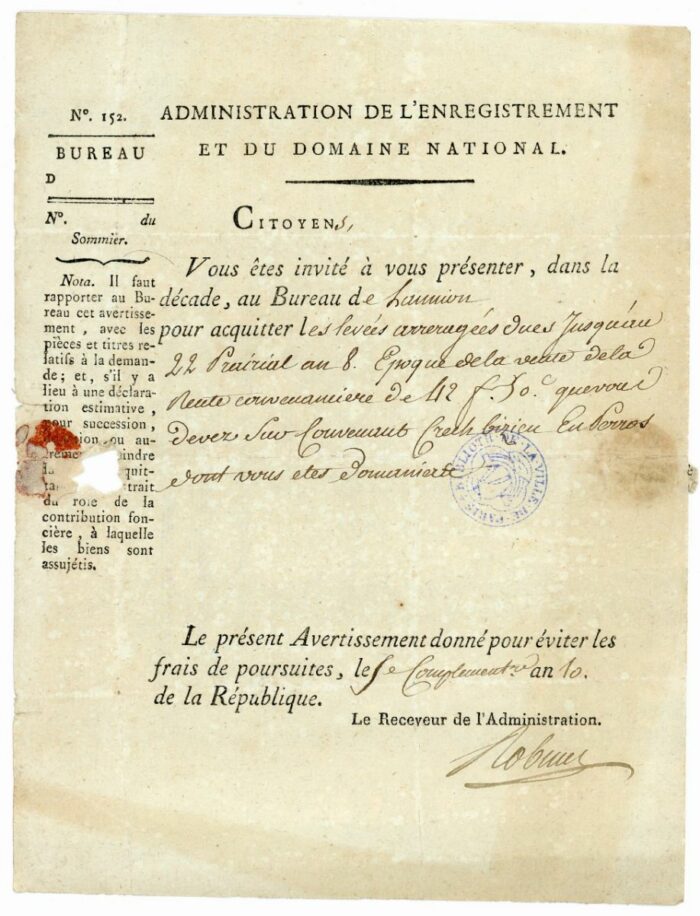 N°. 152.
BUREAU
D
N°. du
Sommier.
Nota. Il faut
rapporter au Bu-
reau cet avertisse-
ment, avec les
pièces et titres re-
latifs à la deman-
de; et, s'il y a
lieu à une déclara-
tion estimative,
pour succession,
ou au-
indre
quit-
trait
du role de la
contribution fon-
cière, à laquelle
les biens sont
assujétis.
ADMINISTRATION DE L'ENREGISTREMENT
ET DU DOMAINE NATIONAL.
CITOYENs,
Vous êtes invité à vous présenter, dans la
décade, au Bureau de Lannion
pour acquitter les levées arreragées dues Jusqu'au
22 Prairial an 8. Epoque de la vente de la
Rente convenanciere de 42 f. 50c que vous
devez Sur Convenant Crech En Perros
dont vous etes Domanier
BIBLIOTH. DE LA VILLE DE PARIS
Le présent Avertissement donné pour éviter les
frais de poursuites, le 5e Complementre an 10.
de la République.
Le Receveur de l'Administration.